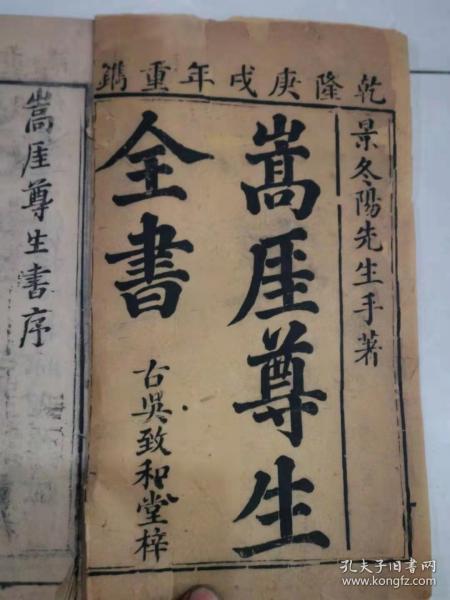 乾隆庚戌年重鐫
景冬陽先生手著
嵩厓尊生
全書
古吳致和堂梓
嵩厓尊生書序
孔夫子旧书网
www.kongfz.com